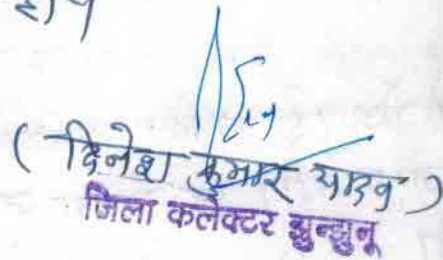 ( दिनेश कुमार यादव )
जिला कलेक्टर झुन्झुनू